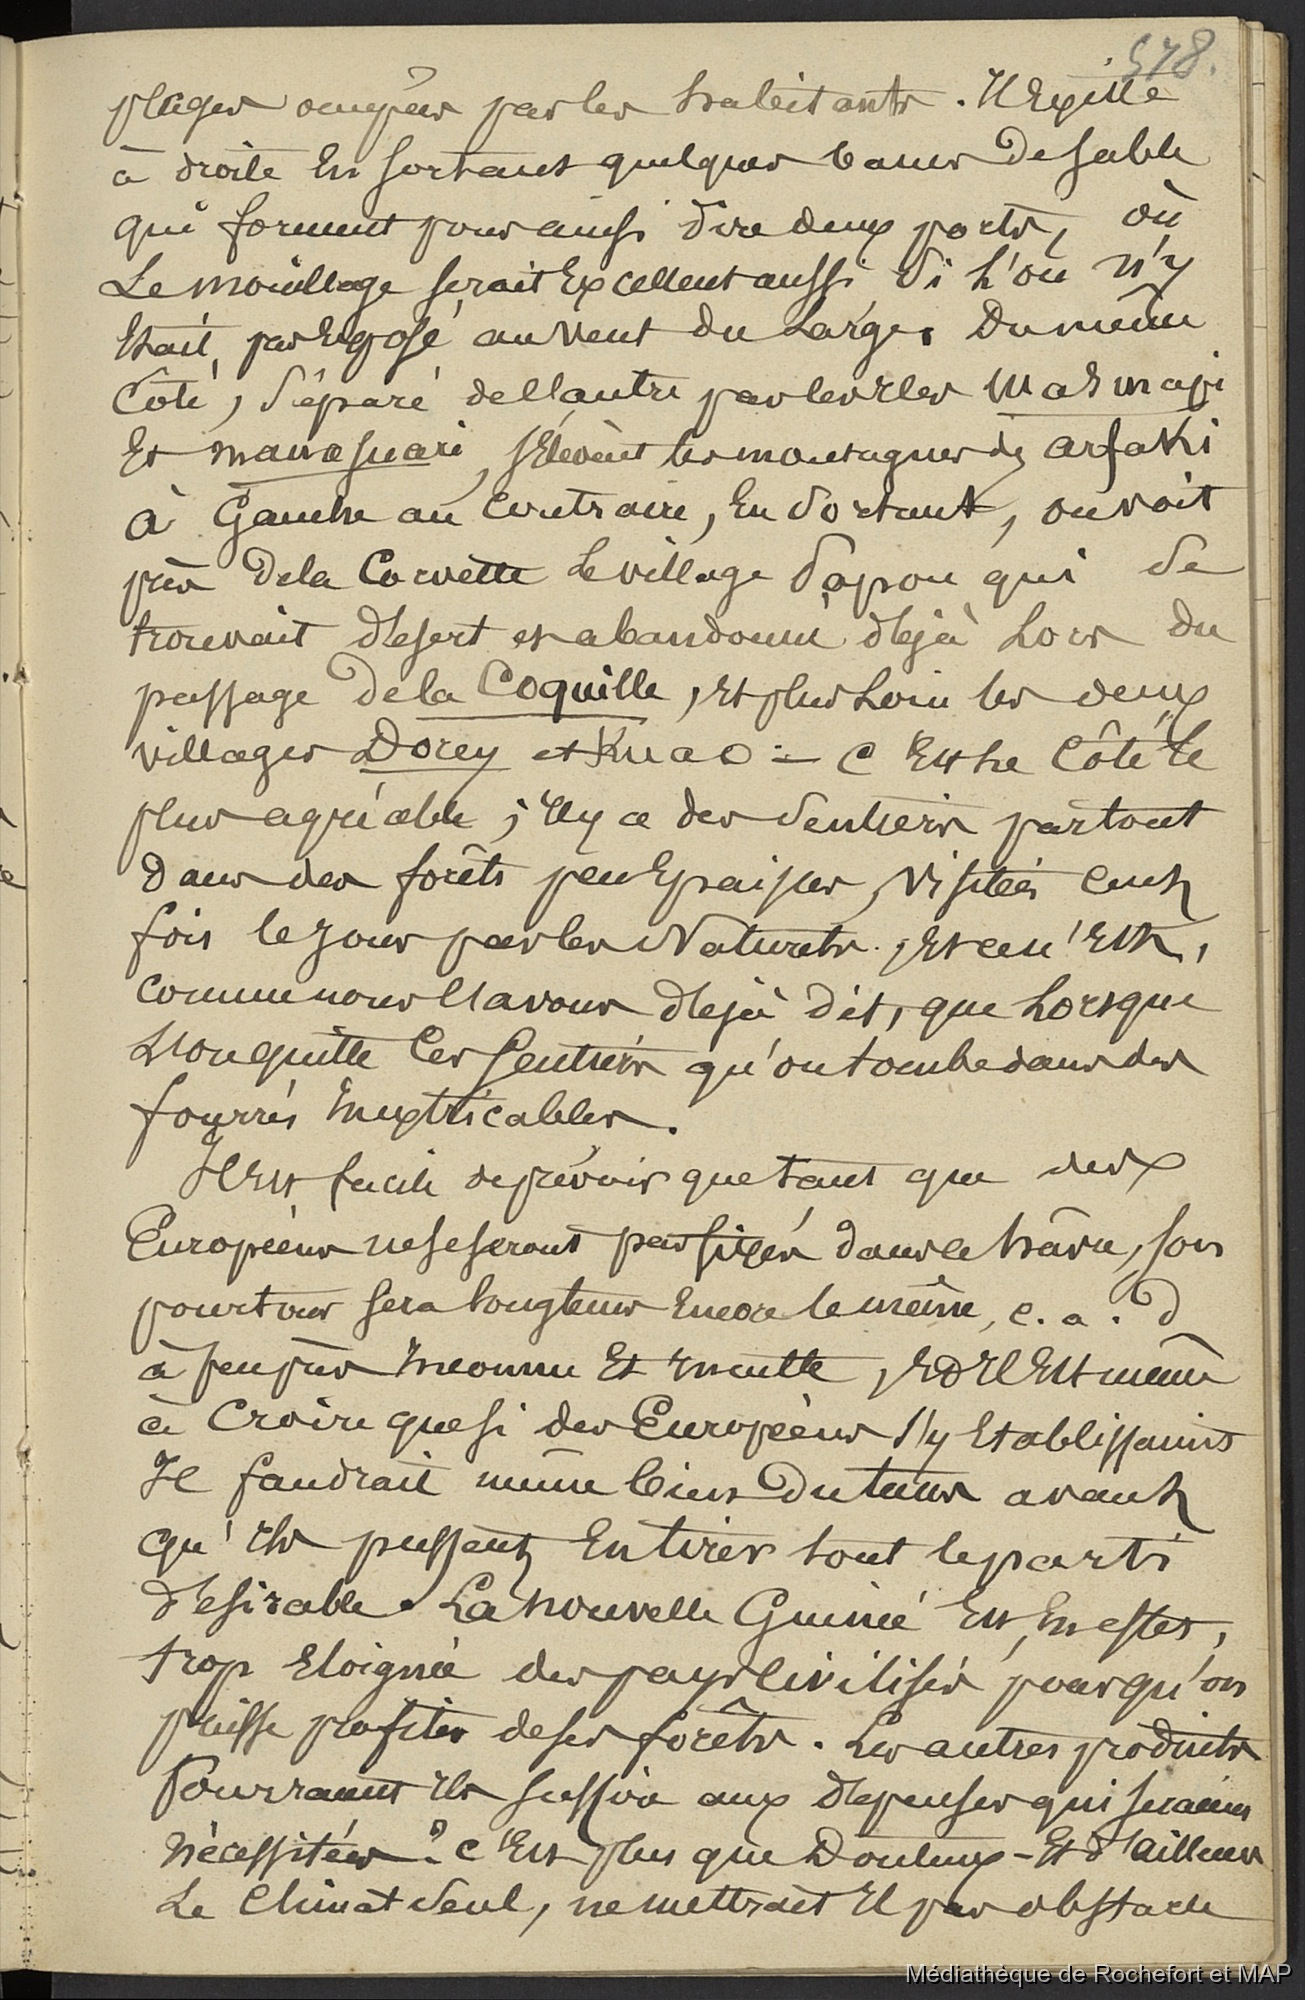 578.
plages occupées par les habitants. Il Existe
à droite En sortant quelques bancs de sable
qui forment pour ainsi dire deux ports, où
Le mouillage serait Excellent aussi si L'on n'y
Etait pas Exposé au Vent du Large. Du même
Côté, séparé de l'autre par les Iles Masmapi
Et manasuari, s'Elèvent les montagnes d'Arfaki
à Gauche au Contraire, En sortant, on voit
près de la Corvette Le village d'apon qui se
trouvait désert et abandonné déjà Lors du
passage de la Coquille, Et plus Loin les deux
villages Dorey et Kuao = C'Est le Côté le
plus agréable ; Il y a des sentiers partout
dans des forêts peu Epaisses, Visitées Cent
fois le jour par les Naturels, Et ce n'Est,
comme nous l'avons déjà dit, que Lorsque
L'on quitte Ces Sentiers qu'on tombe dans des
fourrés Inextricables.
Il Est facile de prévoir que tant que des
Européens ne se seront pas fixés dans ce hâvre, son
pourtour sera longtems Encore le même, c. a. d
à peu près Inconnu Et Inculte, Et Il Est même
à Croire que si des Européens s'y Etablissaient
Il faudrait même bien du tems avant
qu'Ils pussent En tirer tout le parti
désirable. La Nouvelle Guinée Est, En effet,
trop Eloignée des pays Civilisés pour qu'on
puisse profiter de ses forêts. Les autres produits
Pourraient Ils suffire aux dépenses qui seraient
Nécessitées ? C'Est plus que Douteux - Et d'ailleurs
Le Climat seul, ne mettrait Il pas obstacle
Médiathèque de Rochefort et MAP